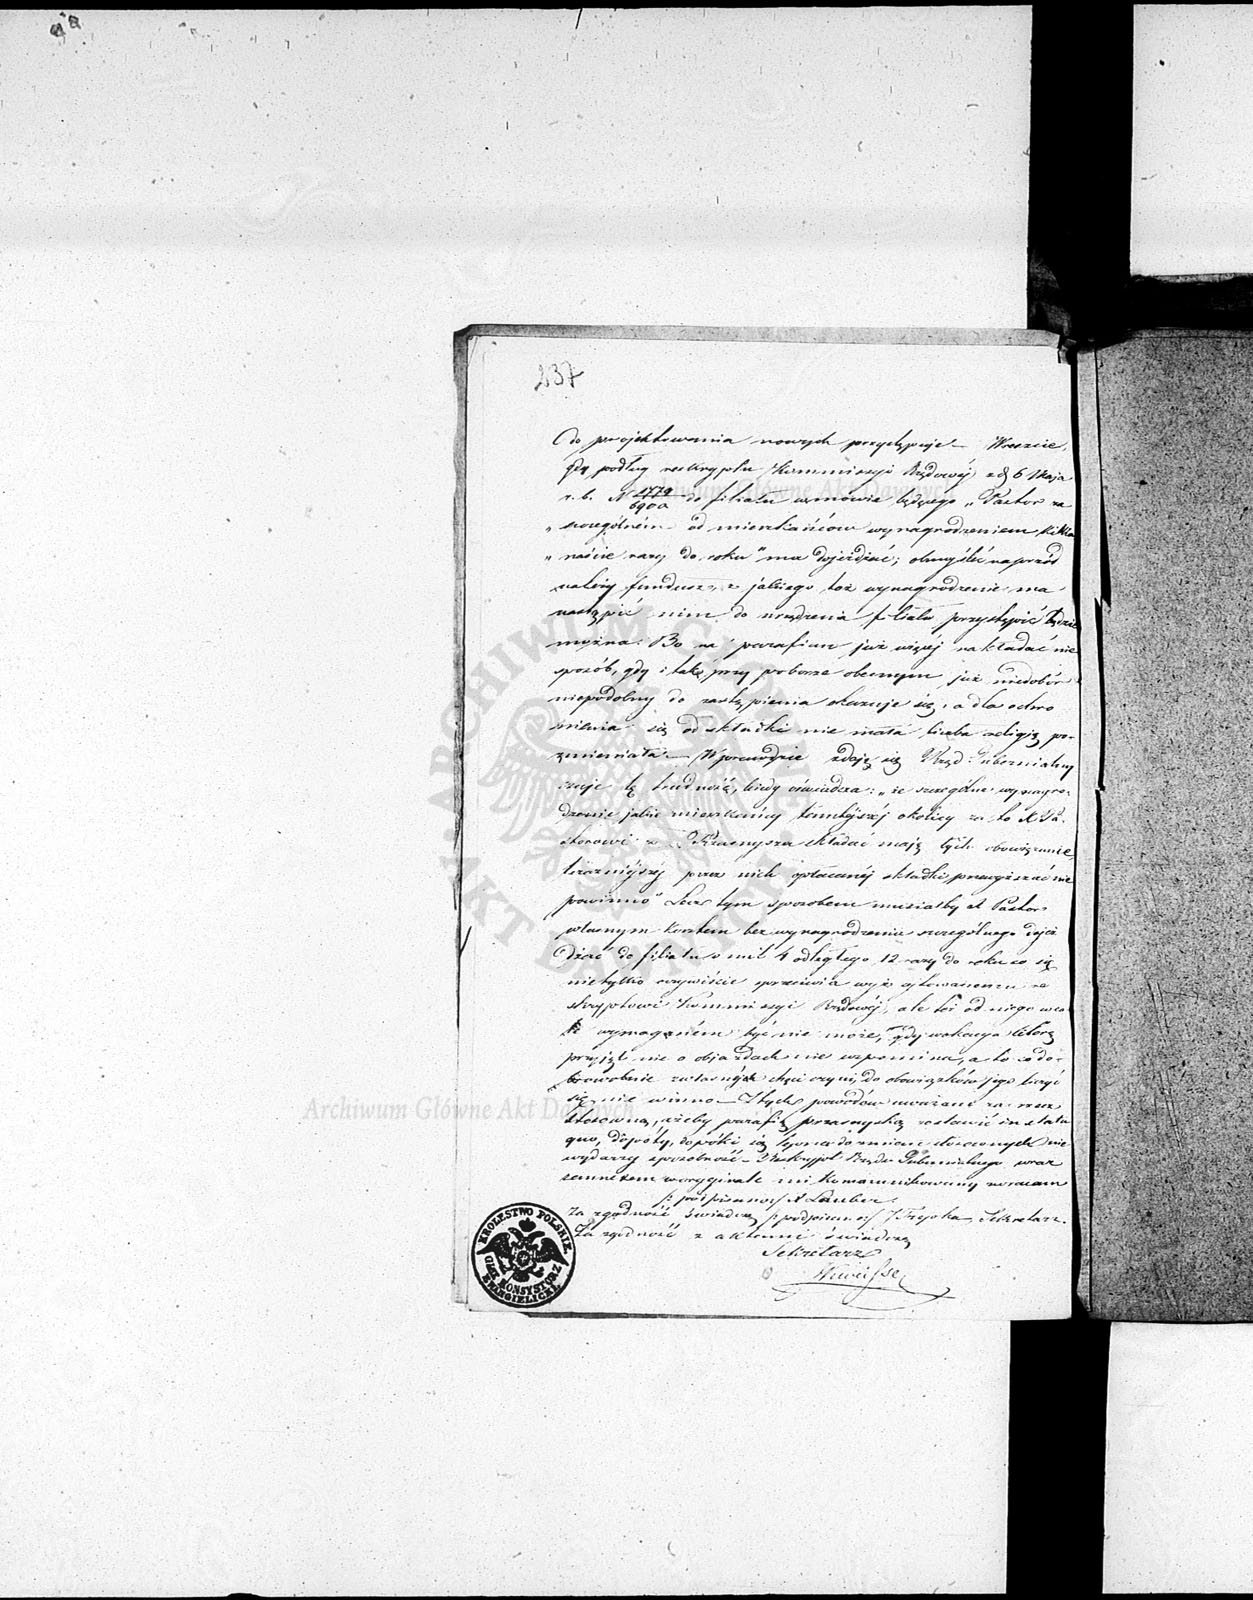 237
do projektowania nowych przystępuje — Wreszcie,
gdy podług reskryptu Kommissyi Rządowej z d 6 Maja
r. b. N 1779/6900 do filiału w mowie będącego „Pastor za
„szczególnem od mieszkańców wynagrodzeniem kilka
„naście razy do roku" ma dojeżdżać; obmyśleć naprzód
należy fundusz, z jakiego toż wynagrodzenie ma
nastąpić nim do urządzenia filiału przystąpić będzie
można. Bo na parafian już więcej nakładać nie
sposób, gdy i tak przy poborze obecnym już niedobór
niepodobny do zastąpienia okazuje się, a dla ochro
nienia się od składki nie mała liczba religię po-
zmieniała — Wprawdzie zdaje się Rząd Gubernialny
czuje tę trudność, kiedy oświadcza: „że szczególne wynagro-
dzenie jakie mieszkańcy tamtejszej okolicy za to X Pa-
storowi z Przasnysza składać mają tych obowiązanie
teraźniejszej przez nich opłacanej składki przewyższać nie
powinno" Lecz tym sposobem musiałby X Pastor
własnym kosztem bez wynagrodzenia szczególnego dojeż
dżać do filiału o mil 4 odległego 12 razy do roku co się
nie tylko oczywiście sprzeciwia wyż cytowanemu re
skryptowi Kommissyi Rządowej, ale też od niego wca-
le wymaganem być nie może, gdy wokacya którą
przyjął nic o objazdach nie wspomina, a to co do-
browolnie z własnych chęci czyni, do obowiązków jego liczyć
się nie winno — Z tych powodów uważam za rzecz
stosowną, ażeby parafię przasnyską zostawić in statu
quo, dopóty, dopóki się lepsza do zmian stosownych nie
wydarzy sposobność — Reskrypt Rządu Gubernialnego wraz
z annexem w oryginale mi kommunikowany zwracam
/: podpisano :/ X Lauber.
Za zgodność świadczę /: podpisano :/ Sekretarz.
Za zgodność z aktami świadczę
Sekretarz
KRÓLESTWO POLSKIE
KONSYSTORZ EWANGIELICKI
Archiwum Główne Akt Dawnych